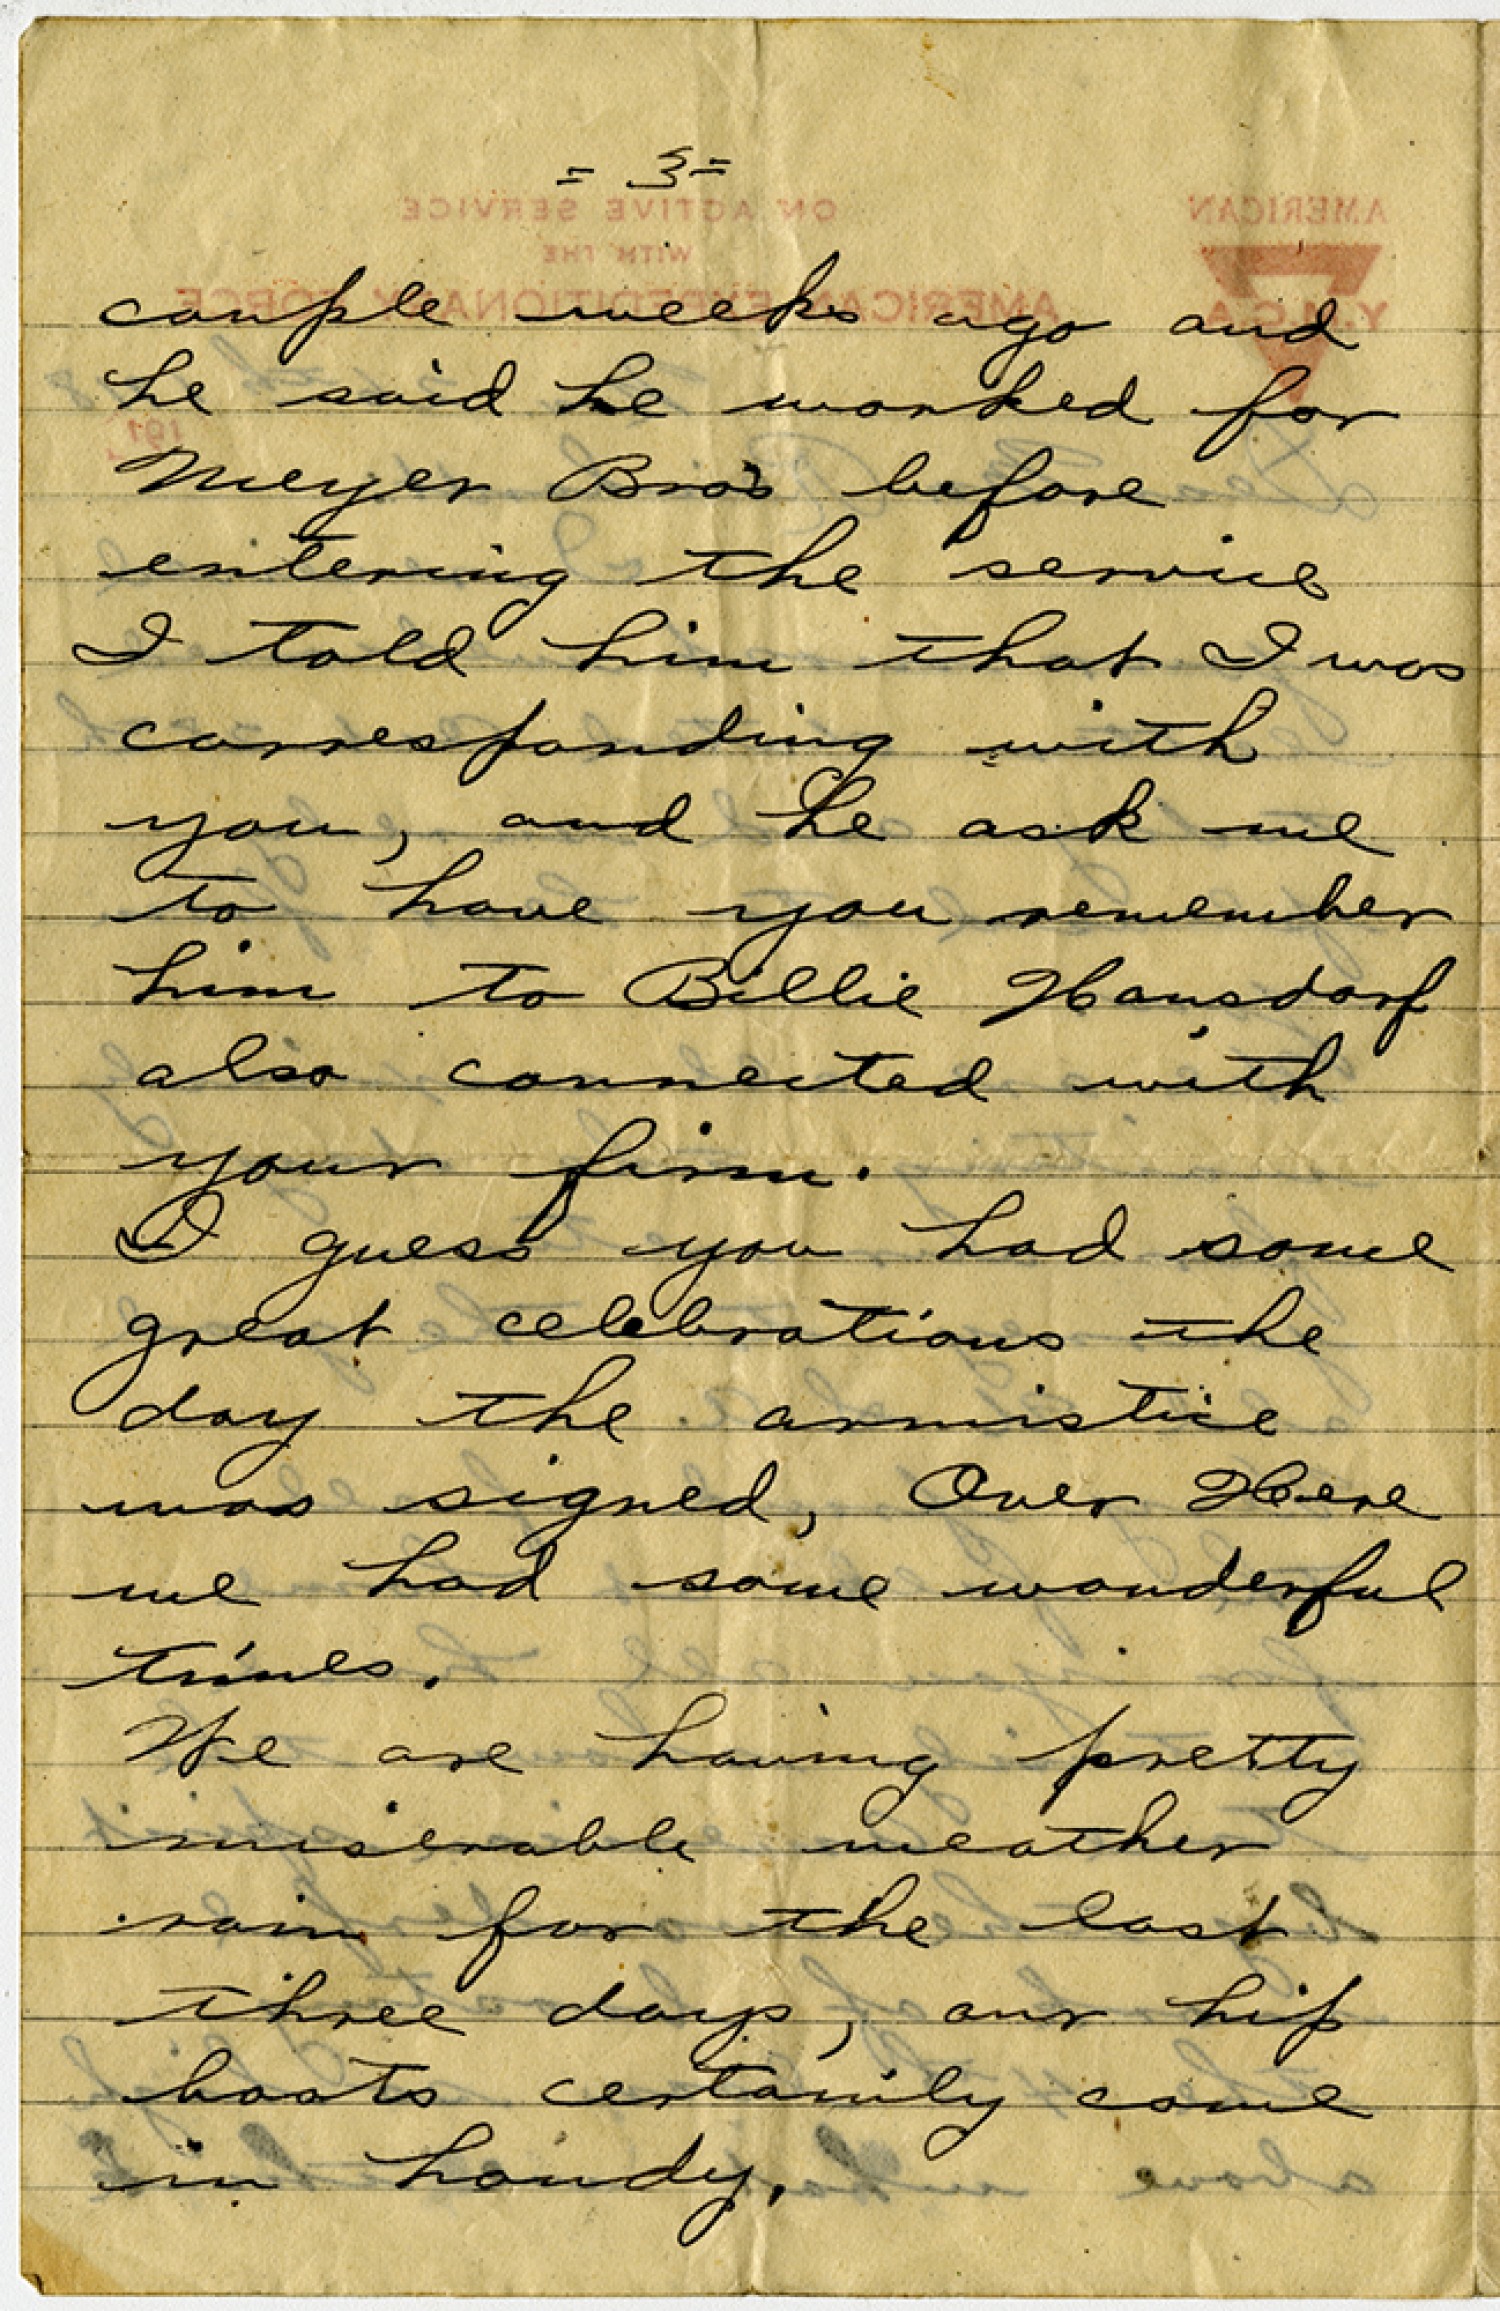 = 3 =
couple weeks ago and
he said he worked for
Meyer Bro's before
entering the service
I told him that I was
corresponding with
you, and he ask me
to have you remember
him to Billie Hansdorf
also connected with
your firm.
I guess you had some
great celebrations the
day the armistice
was signed, Over Here
we had some wonderful
times.
We are having pretty
miserable weather
rain for the last
three days, our hip
boots certainly come
in handy.
AMERICAN
Y.M.C.A.
ON ACTIVE SERVICE
WITH THE
AMERICAN EXPEDITIONARY FORCE
191